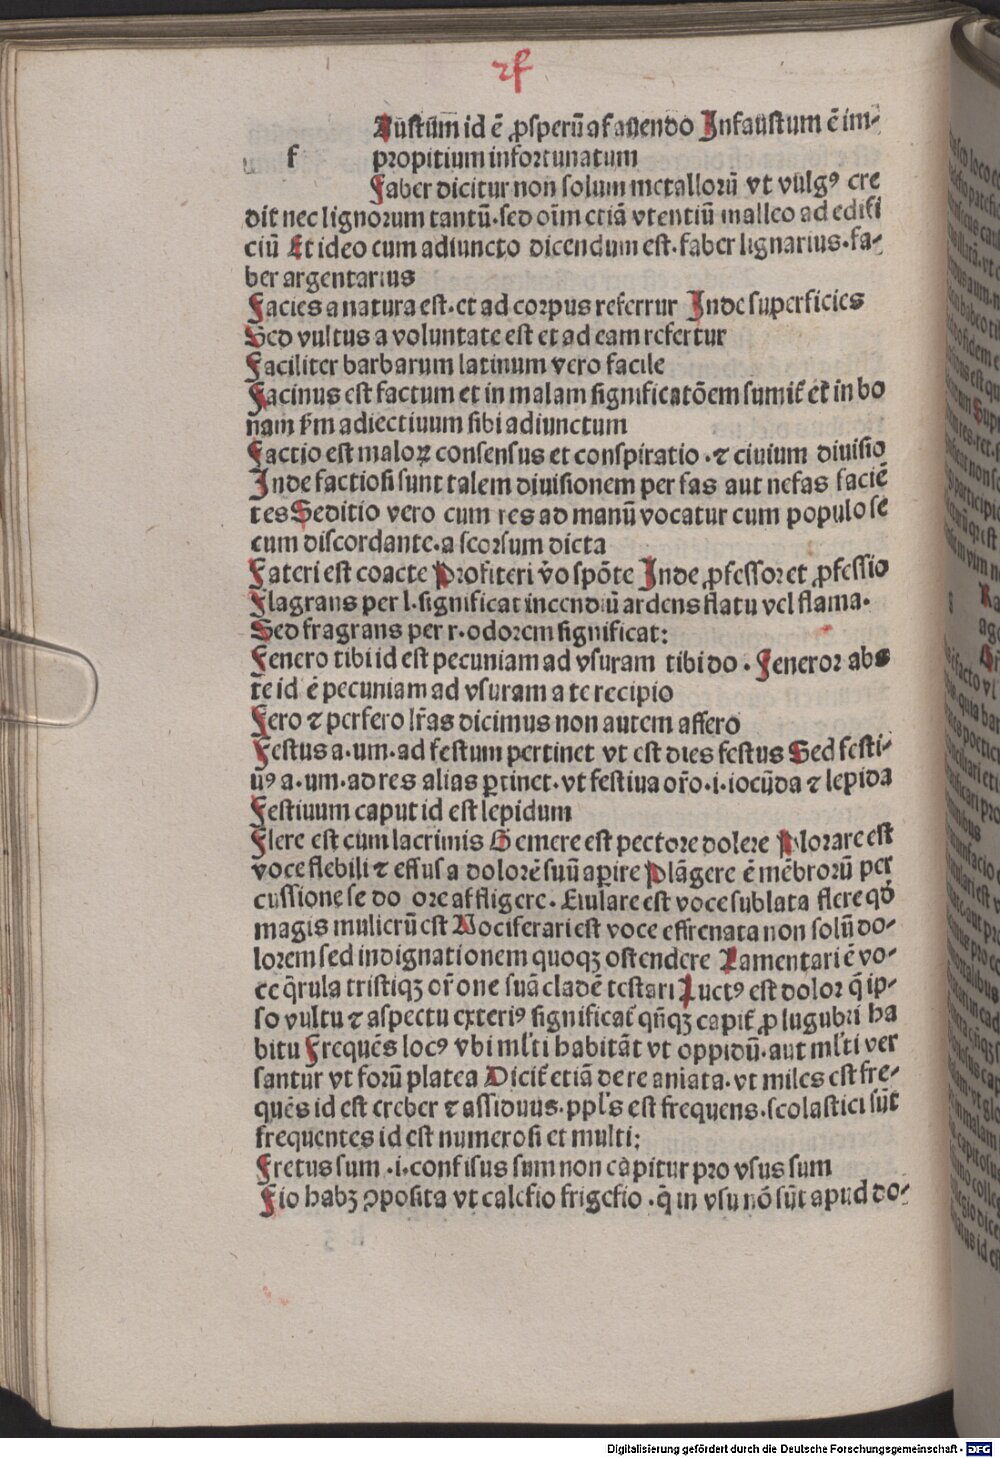 f
Austum id ē ꝓsperū a fauendo Infaustum ē im-
f propitium infortunatum
Faber dicitur non solum metallorū vt vulgꝰ cre
dit nec lignorum tantū·sed oīm etiā vtentiū malleo ad edifi
ciū Et ideo cum adiuncto dicendum est·faber lignarius·fa-
ber argentarius
Facies a natura est·et ad corpus referrur Inde superficies
Sed vultus a voluntate est et ad eam refertur
Faciliter barbarum latinum vero facile
Facinus est factum et in malam significatōem sumit̄ et̄ in bo
nam s̄m adiectiuum sibi adiunctum
Factio est maloꝝ consensus et conspiratio·⁊ ciuium diuisio
Inde factiosi sunt talem diuisionem per fas aut nefas faciē
tes Seditio vero cum res ad manū vocatur cum populo se
cum discordante·a scorsum dicta
Fateri est coacte Profiteri v̄o spōte Inde ꝓfessor et ꝓfessio
Flagrans per l·significat incendiū ardens flatu vel flama·
Sed fragrans per r·odorem significat:
Fenero tibi id est pecuniam ad vsuram tibi do·Feneror abs
te id ē pecuniam ad vsuram a te recipio
Fero ⁊ perfero lr̄as dicimus non autem affero
Festus a·um·ad festum pertinet vt est dies festus Sed festi-
uꝰ a·um·ad res alias ꝑtinet·vt festiua or̄o·i·iocūda ⁊ lepida
Festiuum caput id est lepidum
Flere est cum lacrimis Gemere est pectore dolere Plorare est
voce flebili ⁊ effusa dolorē suū aꝑire Plāgere ē mēbrorū per
cussione se do ore affligere·Eiulare est voce sublata flere qd̄
magis mulierū est Vociferari est voce effrenata non solū do-
lorem sed indignationem quoqꝫ ostendere Lamentari ē vo-
ce q̄rula tristiqꝫ or̄one suā cladē testari Luctꝰ est dolor q̄ ip-
so vultu ⁊ aspectu exteriꝰ significat̄ qn̄qꝫ capit̄ ꝓ lugubri ha
bitu Frequēs locꝰ vbi ml̄ti habitāt vt oppidū·aut ml̄ti ver
santur vt forū platea Dicit̄ etiā de re aniata·vt miles est fre-
quēs id est creber ⁊ assiduus·ppl̄s est frequens·scolastici sūt
frequentes id est numerosi et multi:
Fretus sum·i·confisus sum non capitur pro vsus sum
Fio habꝫ ꝯposita vt calefio frigefio·q̄ in vsu nō sūt apud do-
Digitalisierung gefördert durch die Deutsche Forschungsgemeinschaft - DFG